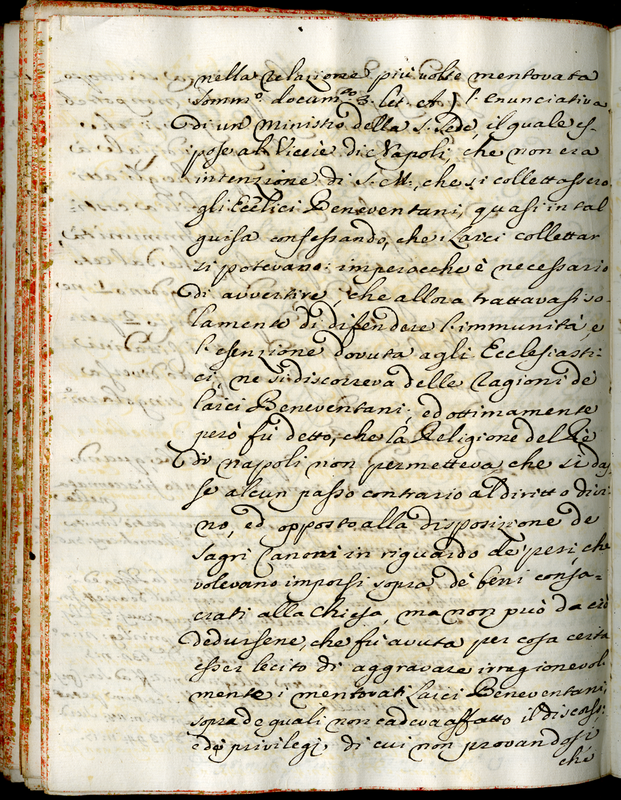 nella relazione più volte mentovata
somm.º docum.to 3. let. A.) l'enunciativa
di un Ministro della S. Sede, il quale es-
pose al Vicerè di Napoli, che non era
intenzione di S. M., che si collettassero
gli Ecclici Beneventani, quasi in tal
guisa confessando, che i Laici collettar
si potevano: imperocche è necessario
di avvertire, che allora trattavasi so-
lamente di difendere l'immunità, e
l'esenzione dovuta agli Ecclesiasti-
ci, ne si discorreva delle ragioni de
laici Beneventani; ed ottimamente
però fù detto, che la Religione del Rè
di napoli non permetteva, che si das
se alcun passo contrario al diritto divi
no, ed opposto alla disposizione de
Sagri Canoni in riguardo de pesi, che
volevano imporsi sopra de beni consa-
crati alla Chiesa, ma non può da ciò
dedursene, che fù avuta per cosa certa
esser lecito di aggravare irragionevol
mente i mentovati Laici Beneventani,
sopra de quali non cadeva affatto il discorso;
e de privilegj di cui non provandosi
che